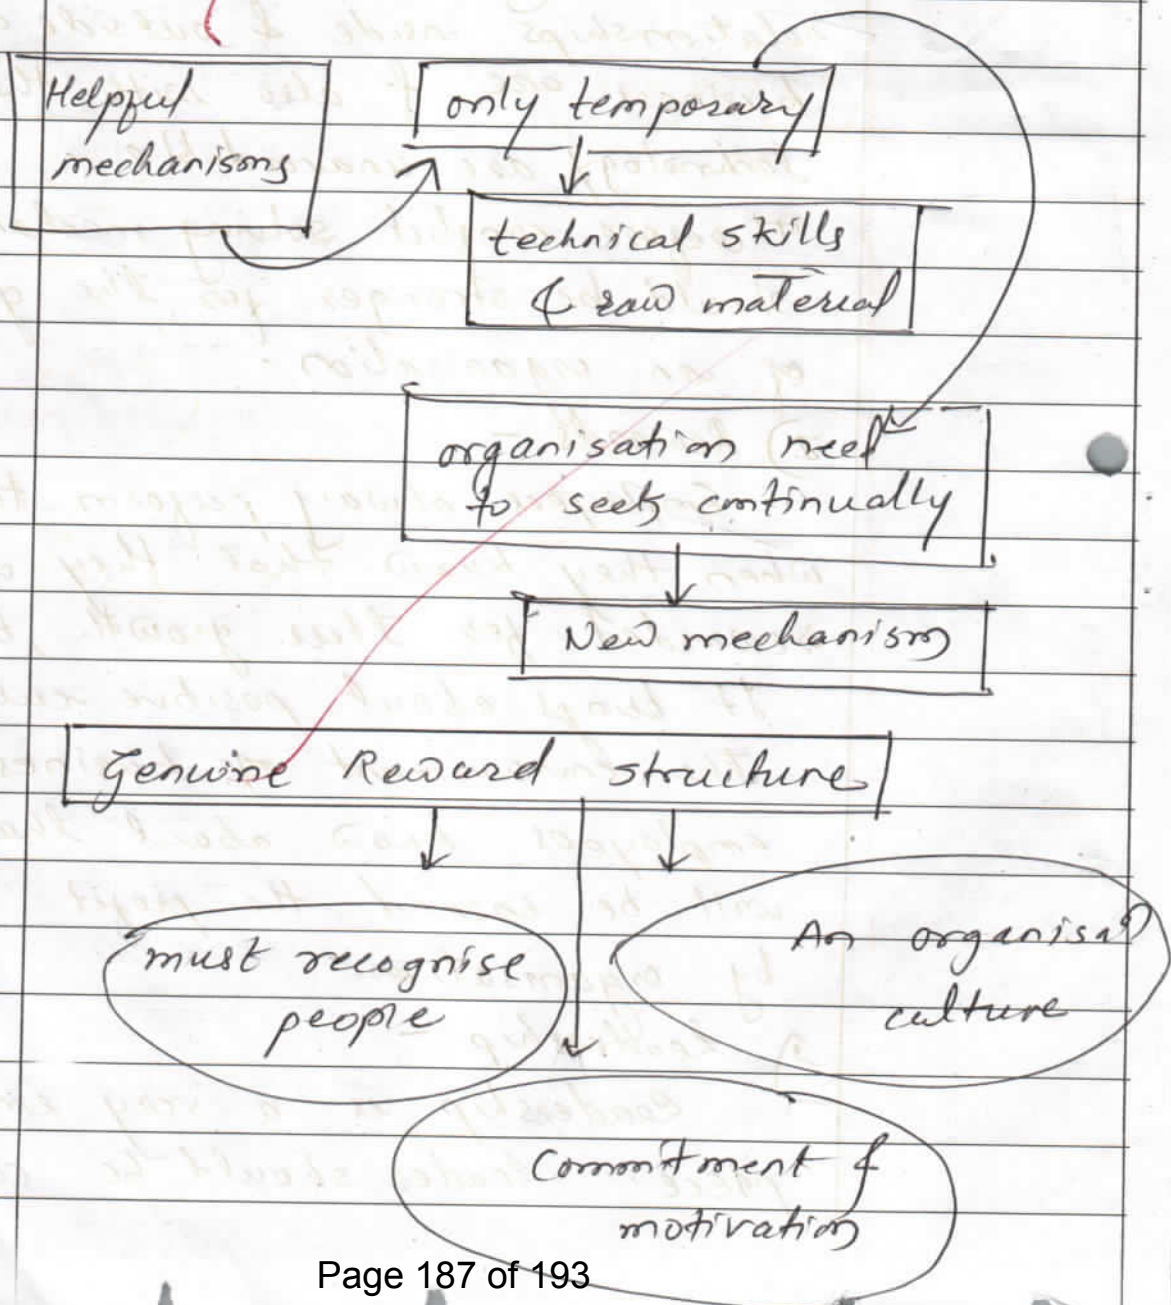 Helpful
mechanisms
only temporary
technical skills
& raw material
organisation need
to seek continually
New mechanism
Genuine Reward structure
must recognise
people
An organisat
culture
Commitment &
motivation
Page 187 of 193